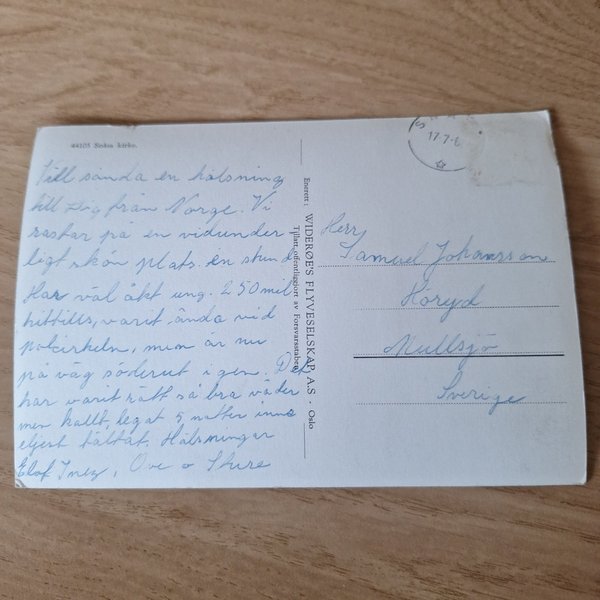 44105 Sedsa kirke.
Vill sända en halsning
till Dig från Norge. Vi
rastar på en vidunder
ligt skön plats en stund.
Har väl åkt ung. 250 mil
hittills, varit ända vid
polcirkeln, men är nu
på väg söderut igen. Det
har varit rätt så bra väder
men kallt, legat 5 nätter inne
eljest tältat. Hälsningar
Elof Inez, Ove o Sture
Enerett: WIDERØE'S FLYVESELSKAP A.S - Oslo
Tillatt offentliggjort av Forsvarsstaben
17.7.6
Herr
Samuel Johansson
Höryd
Mullsjö
Sverige